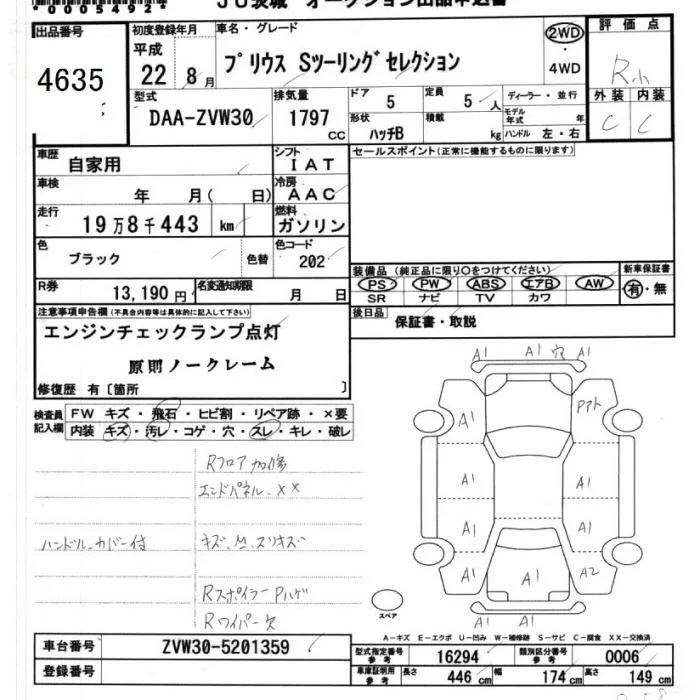 *00005492*
JU茨城 オークション出品申込書
出品番号 初度登録年月 車名・グレード 2WD 評価点
4635 平成 22 8月 プリウス Sツーリングセレクション ・ 4WD R小
型式 排気量 ドア 5 定員 5人 ディーラー・並行 外装 内装
DAA-ZVW30 1797 CC 形状 ハッチB 積載 kg モデル年式 年 ハンドル 左・右 C C
車歴 自家用 シフト IAT セールスポイント(正常に機能するものに限ります)
車検 年 月( 日) 冷房 AAC
走行 19万8千443 km 燃料 ガソリン
色 ブラック 色替 色コード 202 装備品(純正品に限り○をつけてください) 新車保証書
PS PW ABS エアB AW 有・無
R券 13,190円 名変通知期限 月 日 SR ナビ TV カワ
注意事項申告欄(不具合内容等は具体的に記入して下さい) 後日品 保証書・取説
エンジンチェックランプ点灯
原則ノークレーム
修復歴 有〔箇所 〕
検査員記入欄 FW キズ・飛石・ヒビ割・リペア跡・×要
内装 キズ・汚レ・コゲ・穴・スレ・キレ・破レ
A1 A1 穴 A1
A1 Pアト
Rフロア加修
エンドパネル、××
A1 A1
ハンドル、カバー付 キズ、凹、スリキズ
A1 A1
Rスポイラー Pハゲ
Rワイパー欠
A1 A1 A2
スペア
A1
A-キズ E-エクボ U-凹み W-補修跡 S-サビ C-腐食 XX-交換済
車台番号 ZVW30-5201359 型式指定番号 参考 16294 類別区分番号 参考 0006
登録番号 車庫証明用 参考 長さ 446cm 幅 174cm 高さ 149cm